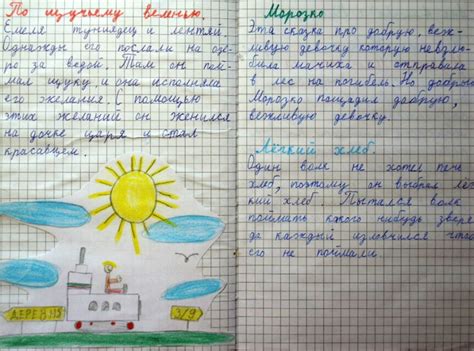 По щучьему веленью.
Емеля тунеядец и лентяй.
Однажды его послали на озе-
ро за водой. Там он пой-
мал щуку и она исполняла
его желания. С помощью
этих желаний он женился
на дочке царя и стал
красавцем.
ДЕРЕВНЯ
3/9
Морозко
Эта сказка про добрую, веж-
ливую девочку которую невзлю-
била мачиха и отправила
в лес на погибель. Но добрый
Морозко пощадил добрую,
вежливую девочку.
Лёгкий хлеб.
Один волк не хотел печь
хлеб, поэтому он выбрал лёг
кий хлеб. Пытался волк
поймать какого нибудь зверя
да каждый изловчился чтоб
его не поймали.